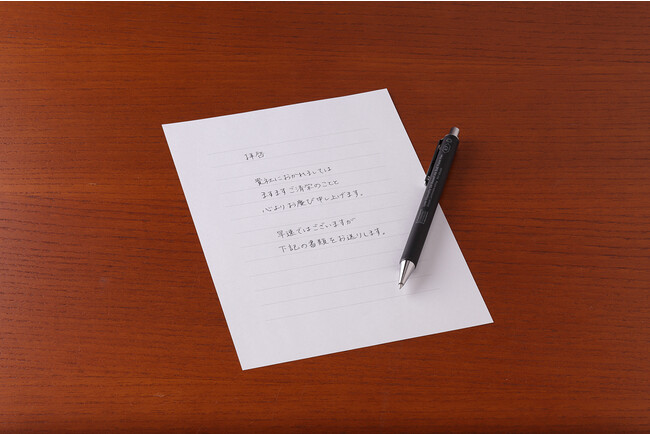 拝啓
貴社におかれましては
ますますご清栄のことと
心よりお慶び申し上げます。
早速ではございますが
下記の書類をお送りします。